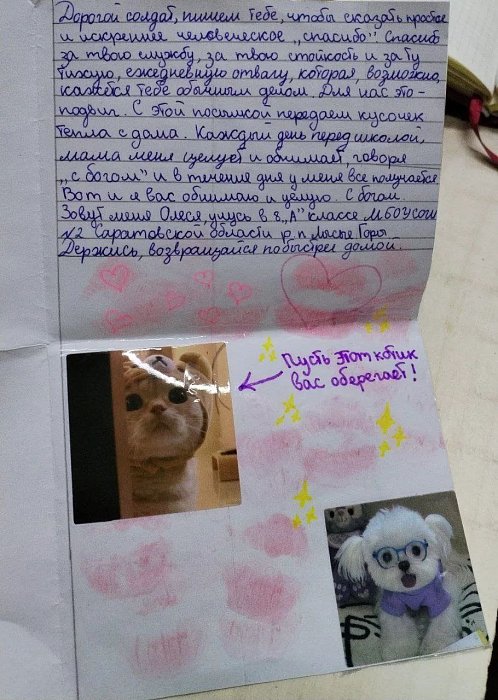 Дорогой солдат, пишем тебе, чтобы сказать простое
и искреннее человеческое „спасибо". Спасибо
за твою службу, за твою стойкость и за ту
тихую, ежедневную отвагу, которая, возможно,
кажется тебе обычным делом. Для нас это -
подвиг. С этой посылкой передаем кусочек
тепла с дома. Каждый день перед школой,
мама меня целует и обнимает, говоря
„с богом" и в течении дня у меня все получается
Вот и я вас обнимаю и целую. С богом.
Зовут меня Олеся, учусь в 8 „А" классе МБОУ СОШ
№2 Саратовской области р.п Лысые Горы
Держись, возвращайся побыстрее домой.
Пусть этот котик
вас оберегает!